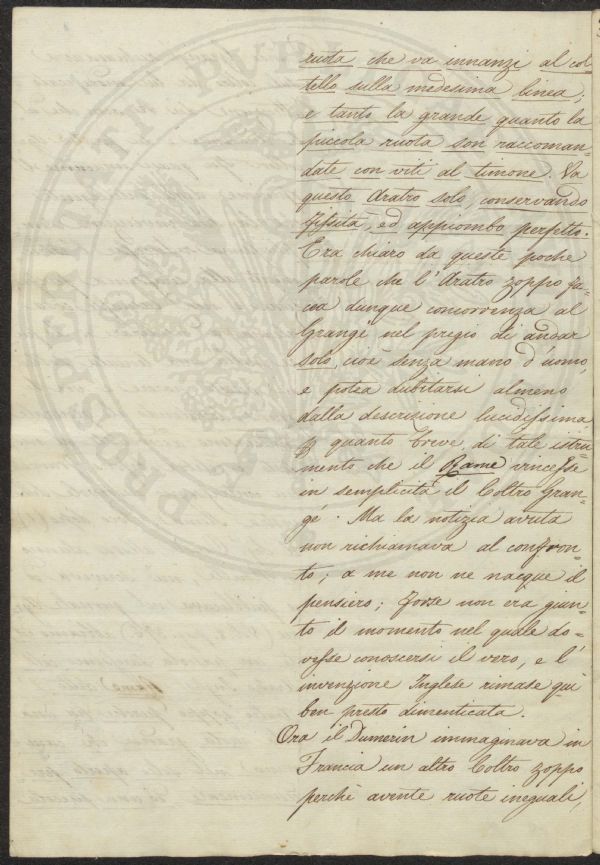 ruota che va innanzi al col=
tello sulla medesima linea;
e tanto la grande quanto la
piccola ruota son raccoman=
date con viti al timone. Va
questo Aratro solo, conservando
fissità, ed appiombo perfetto.
Era chiaro da queste poche
parole che l'Aratro zoppo fa=
cea dunque concorrenza al
Grangé nel pregio di andar
solo, cioè senza mano d'uomo,
e potea dubitarsi almeno
dalla descrizione lucidissima
p quanto breve, di tale istru=
mento che il Rame vincesse
in semplicità il Coltro Gran=
gé. Ma la notizia avuta
non richiamava al confron=
to; a me non ne nacque il
pensiero; forse non era giun=
to il momento nel quale do=
vesse conoscersi il vero, e l'
invenzione Inglese rimase quì
ben presto dimenticata.
Ora il Dumerin immaginava in
Francia un altro Coltro zoppo
perchè avente ruote ineguali,
PROSPERITATI PVBLICAE